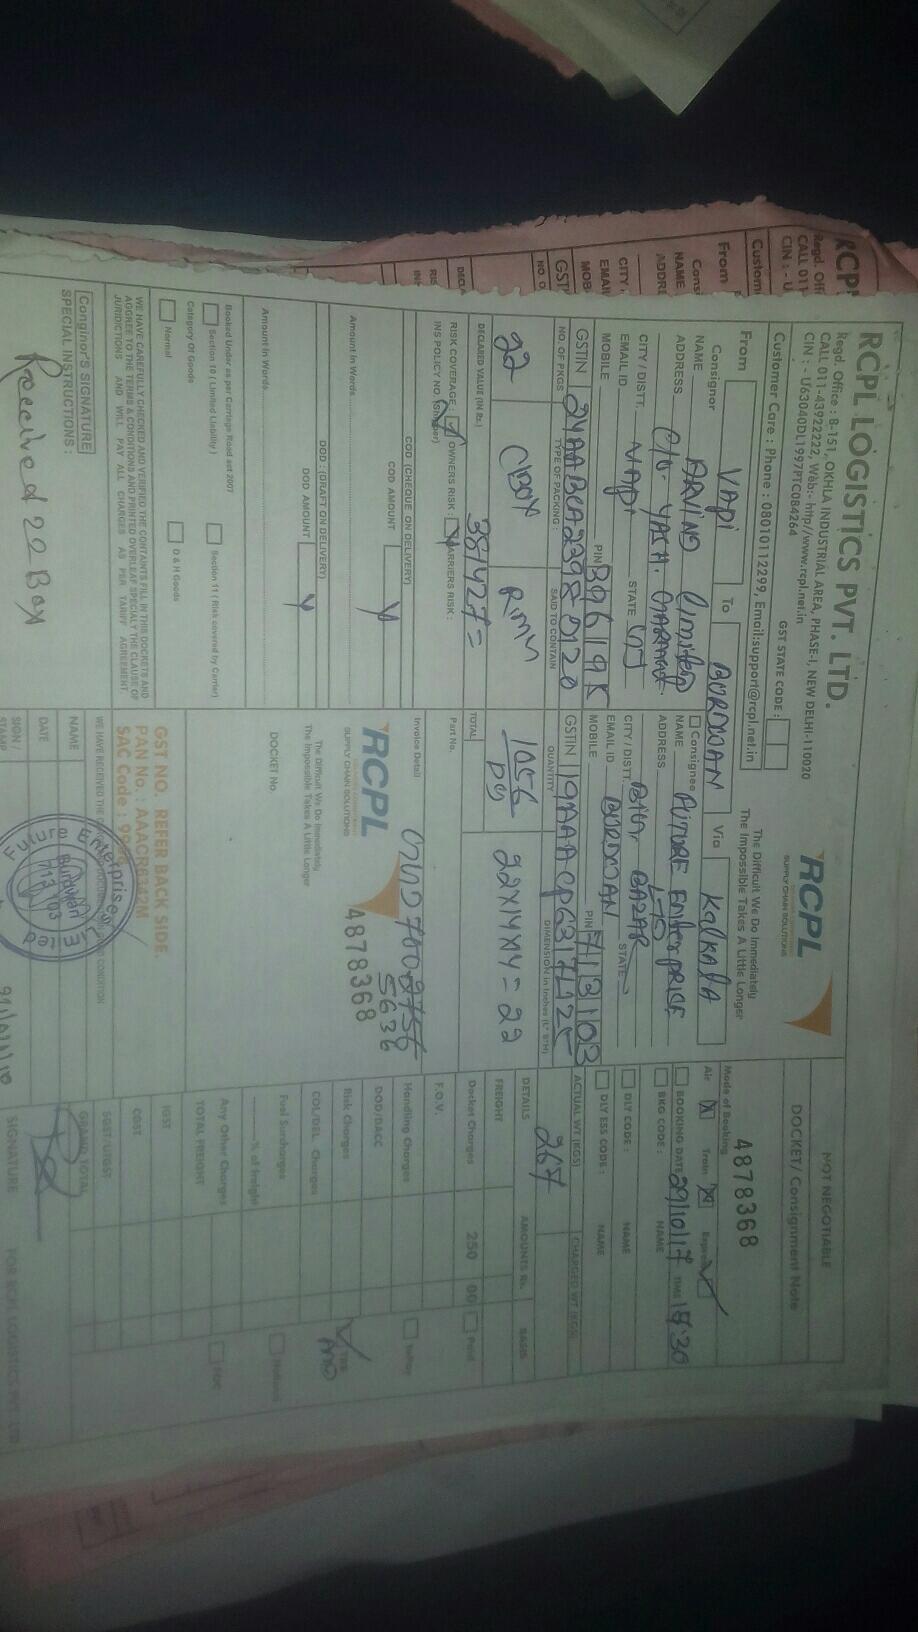 RCPL LOGISTICS PVT. LTD.
Regd. Office : B-151, OKHLA INDUSTRIAL AREA, PHASE-I, NEW DELHI-110020
CALL 011-43922222, Web:- http//www.rcpl.net.in
CIN : - U63040DL1997PTC084264
GST STATE CODE :
Customer Care : Phone : 08010112299, Email:support@rcpl.net.in
RCPL
SUPPLY CHAIN SOLUTIONS
The Difficult We Do Immediately
The Impossible Takes A Little Longer
NOT NEGOTIABLE
DOCKET/ Consignment Note
4878368
From Vapi To BURDWAN Via KalKaTA
Mode of Booking
Air Train Express
Consignor
NAME ARVIND Limited
ADDRESS C/o- YASH.
CITY / DISTT. Vapi STATE GUJ
EMAIL ID
MOBILE PIN 39619
GSTIN 24AABCA2398
Consignee
NAME FUTURE Enterprise
ADDRESS LTD
BIG BAZAR
CITY / DISTT. BURDWAN STATE
EMAIL ID
MOBILE PIN 713103
GSTIN 19AAACP6317
BOOKING DATE 29/10/17 TIME 18:30
BKG CODE : NAME
DLY CODE : NAME
DLY ESS CODE : NAME
ACTUAL WT (KGS) CHARGED WT (KGS)
267
NO. OF PKGS TYPE OF PACKING : SAID TO CONTAIN QUANTITY DIMENSION in Inches (L* B*H)
22 CBOX 1056 PCS 22X14X14=22
TOTAL
DECLARED VALUE (IN Rs.) 381427=
RISK COVERAGE : OWNERS RISK : CARRIERS RISK :
INS POLICY NO.
COD (CHEQUE ON DELIVERY)
COD AMOUNT
Amount In Words
DOD : (DRAFT ON DELIVERY)
DOD AMOUNT
Amount In Words
Booked Under as per Carriage Road act 2007
Section 10 ( Limited Liability ) Section 11 ( Risk covered by Carrier)
Category Of Goods
Normal D & H Goods
WE HAVE CAREFULLY CHECKED AND VERIFIED THE CONTAINTS FILL IN THIS DOCKETS AND
AGGREE TO THE TERMS & CONDITIONS AND PRINTED OVERLEAF SPECIALY THE CLAUSE OF
JURIDICTIONS AND WILL PAY ALL CHARGES AS PER TARIFF AGREEMENT.
Conginor's SIGNATURE
SPECIAL INSTRUCTIONS :
Received 22 Box
Part No.
Invoice Detail
5636
RCPL
SUPPLY CHAIN SOLUTIONS
4878368
The Difficult We Do Immediately
The Impossible Takes A Little Longer
DOCKET No.
GST NO. REFER BACK SIDE.
PAN No. : AAACR6342M
SAC Code :
WE HAVE RECEIVED THE
NAME
DATE
SIGN /
STAMP
Future Enterprises Limited
DETAILS AMOUNTS Rs. BASIS
FREIGHT
Docket Charges 250 00 Paid
F.O.V.
Handling Charges
DOD/DACC
Risk Charges
COL/DEL Charges
Fuel Surcharges
% of freight
Any Other Charges
TOTAL FREIGHT
IGST
CGST
SGST/UTGST
GRAND TOTAL
SIGNATURE FOR RCPL LOGISTICS PVT. LTD